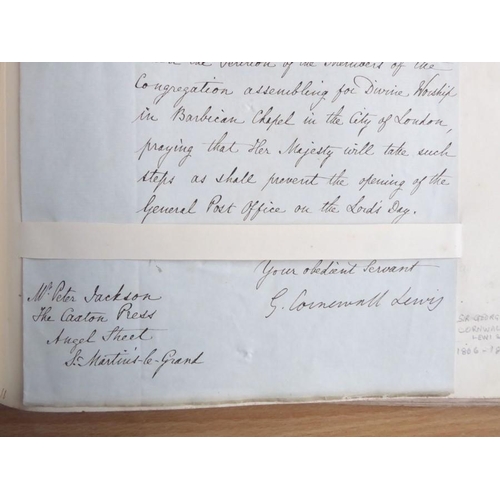 the Petition of the Members of the
Congregation assembling for Divine Worship
in Barbican Chapel in the City of London,
praying that Her Majesty will take such
steps as shall prevent the opening of the
General Post Office on the Lord's Day.
Your obedient Servant
G. Cornewall Lewis
Mr. Peter Jackson
The Caxton Press
Angel Street
St. Martin's-le-Grand
CORNWALL
LEWIS
1806-18